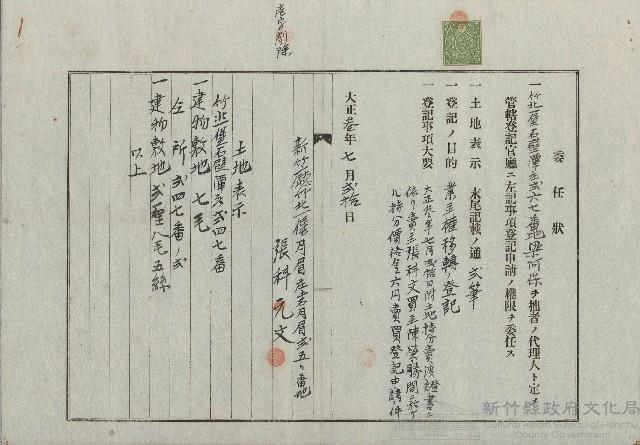 壱字削除
委任狀
一竹北一堡石壁潭庄弐六七番地梁阿保ヲ拙者ノ代理人ト定メ
管轄登記官廳ニ左記事項登記申請ノ權限ヲ委任ス
一土地表示 末尾記載ノ通 弐筆
一登記ノ目的 業主權移轉ノ登記
一登記事項大要 大正參年七月弐拾日附土地持分賣渡證書ニ
依リ賣主張科文買主陳榮勝間ニ於ケ
ル持分價格金六円賣買登記申請ノ件
大正參年七月弐拾日
新竹廳竹北一堡月眉庄土名月眉弐五番地
張科元文
土地表示
竹北一堡石壁潭庄弐四七番
一建物敷地 七毛
仝所弐四七番ノ弐
一建物敷地 弐厘八毛五絲
以上
新竹縣政府文化局
Cultural Affairs Bureau of Hsinchu
County Government